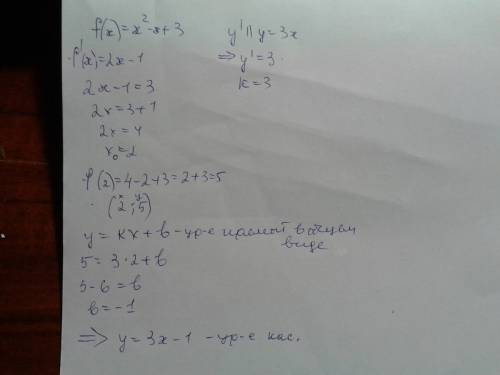 f(x)=x²-x+3
y' || y=3x
f'(x)=2x-1
⇒ y'=3.
2x-1=3
k=3
2x=3+1
2x=4
x₀=2
f(2)=4-2+3=2+3=5
x y
(2;5)
y=kx+b-ур-е прямой в общем
виде
5=3·2+b
5-6=b
b=-1
⇒ y=3x-1 -ур-е кас.